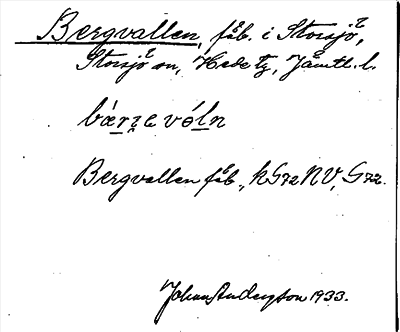 Bergvallen, fäb. i Storsjö,
Storsjö sn, Hede tg, Jämtl. l.
bǽrɡe vóln
Bergvallen fäb., kG72NV, G72.
Johan Anderson 1933.